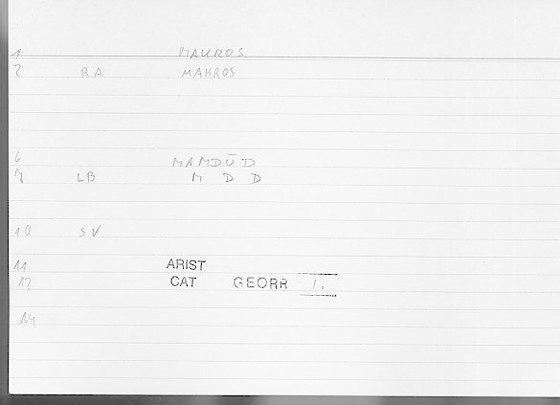 1 MAKROS
2 RA MAKROS
6 MAMDŪD
7 LB M D D
10 SV
11 ARIST
12 CAT GEORR 1.
14